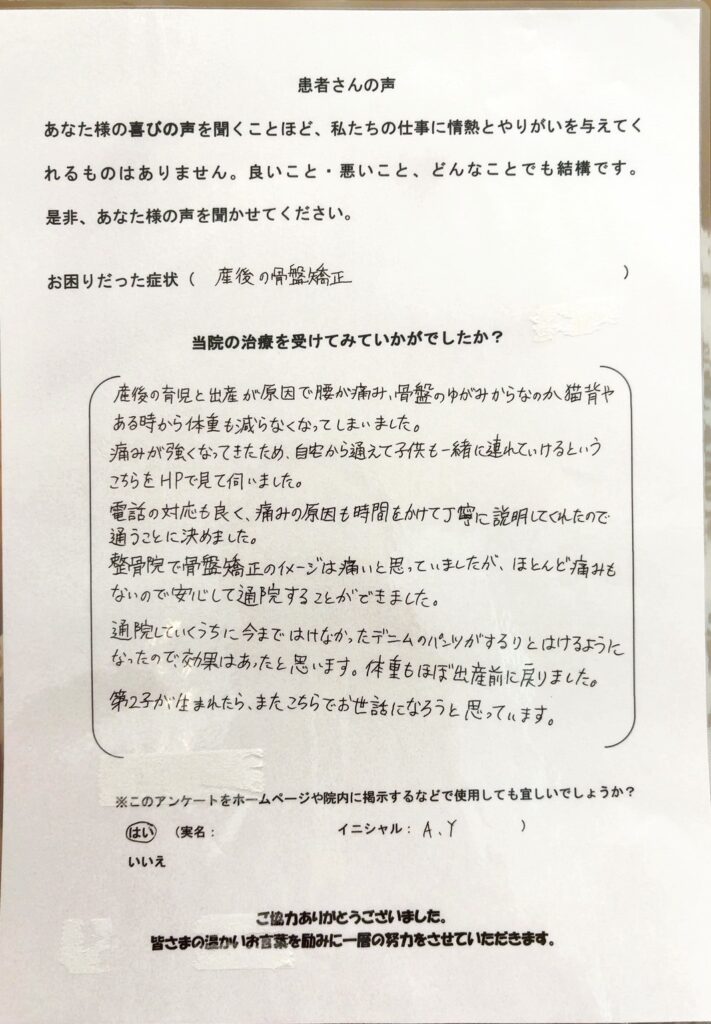 患者さんの声
あなた様の喜びの声を聞くことほど、私たちの仕事に情熱とやりがいを与えてく
れるものはありません。良いこと・悪いこと、どんなことでも結構です。
是非、あなた様の声を聞かせてください。
お困りだった症状（ 産後の骨盤矯正 ）
当院の治療を受けてみていかがでしたか？
産後の育児と出産が原因で腰が痛み、骨盤のゆがみからなのか、猫背や
ある時から体重も減らなくなってしまいました。
痛みが強くなってきたため、自宅から通えて子供も一緒に連れていけるという
こちらをHPで見て伺いました。
電話の対応も良く、痛みの原因も時間をかけて丁寧に説明してくれたので
通うことに決めました。
整骨院で骨盤矯正のイメージは痛いと思っていましたが、ほとんど痛みも
ないので安心して通院することができました。
通院していくうちに今まではけなかったデニムのパンツがするりとはけるように
なったので、効果はあったと思います。体重もほぼ出産前に戻りました。
第2子が生まれたら、またこちらでお世話になろうと思っています。
※このアンケートをホームページや院内に掲示するなどで使用しても宜しいでしょうか？
はい （実名： イニシャル： A.Y ）
いいえ
ご協力ありがとうございました。
皆さまの温かいお言葉を励みに一層の努力をさせていただきます。